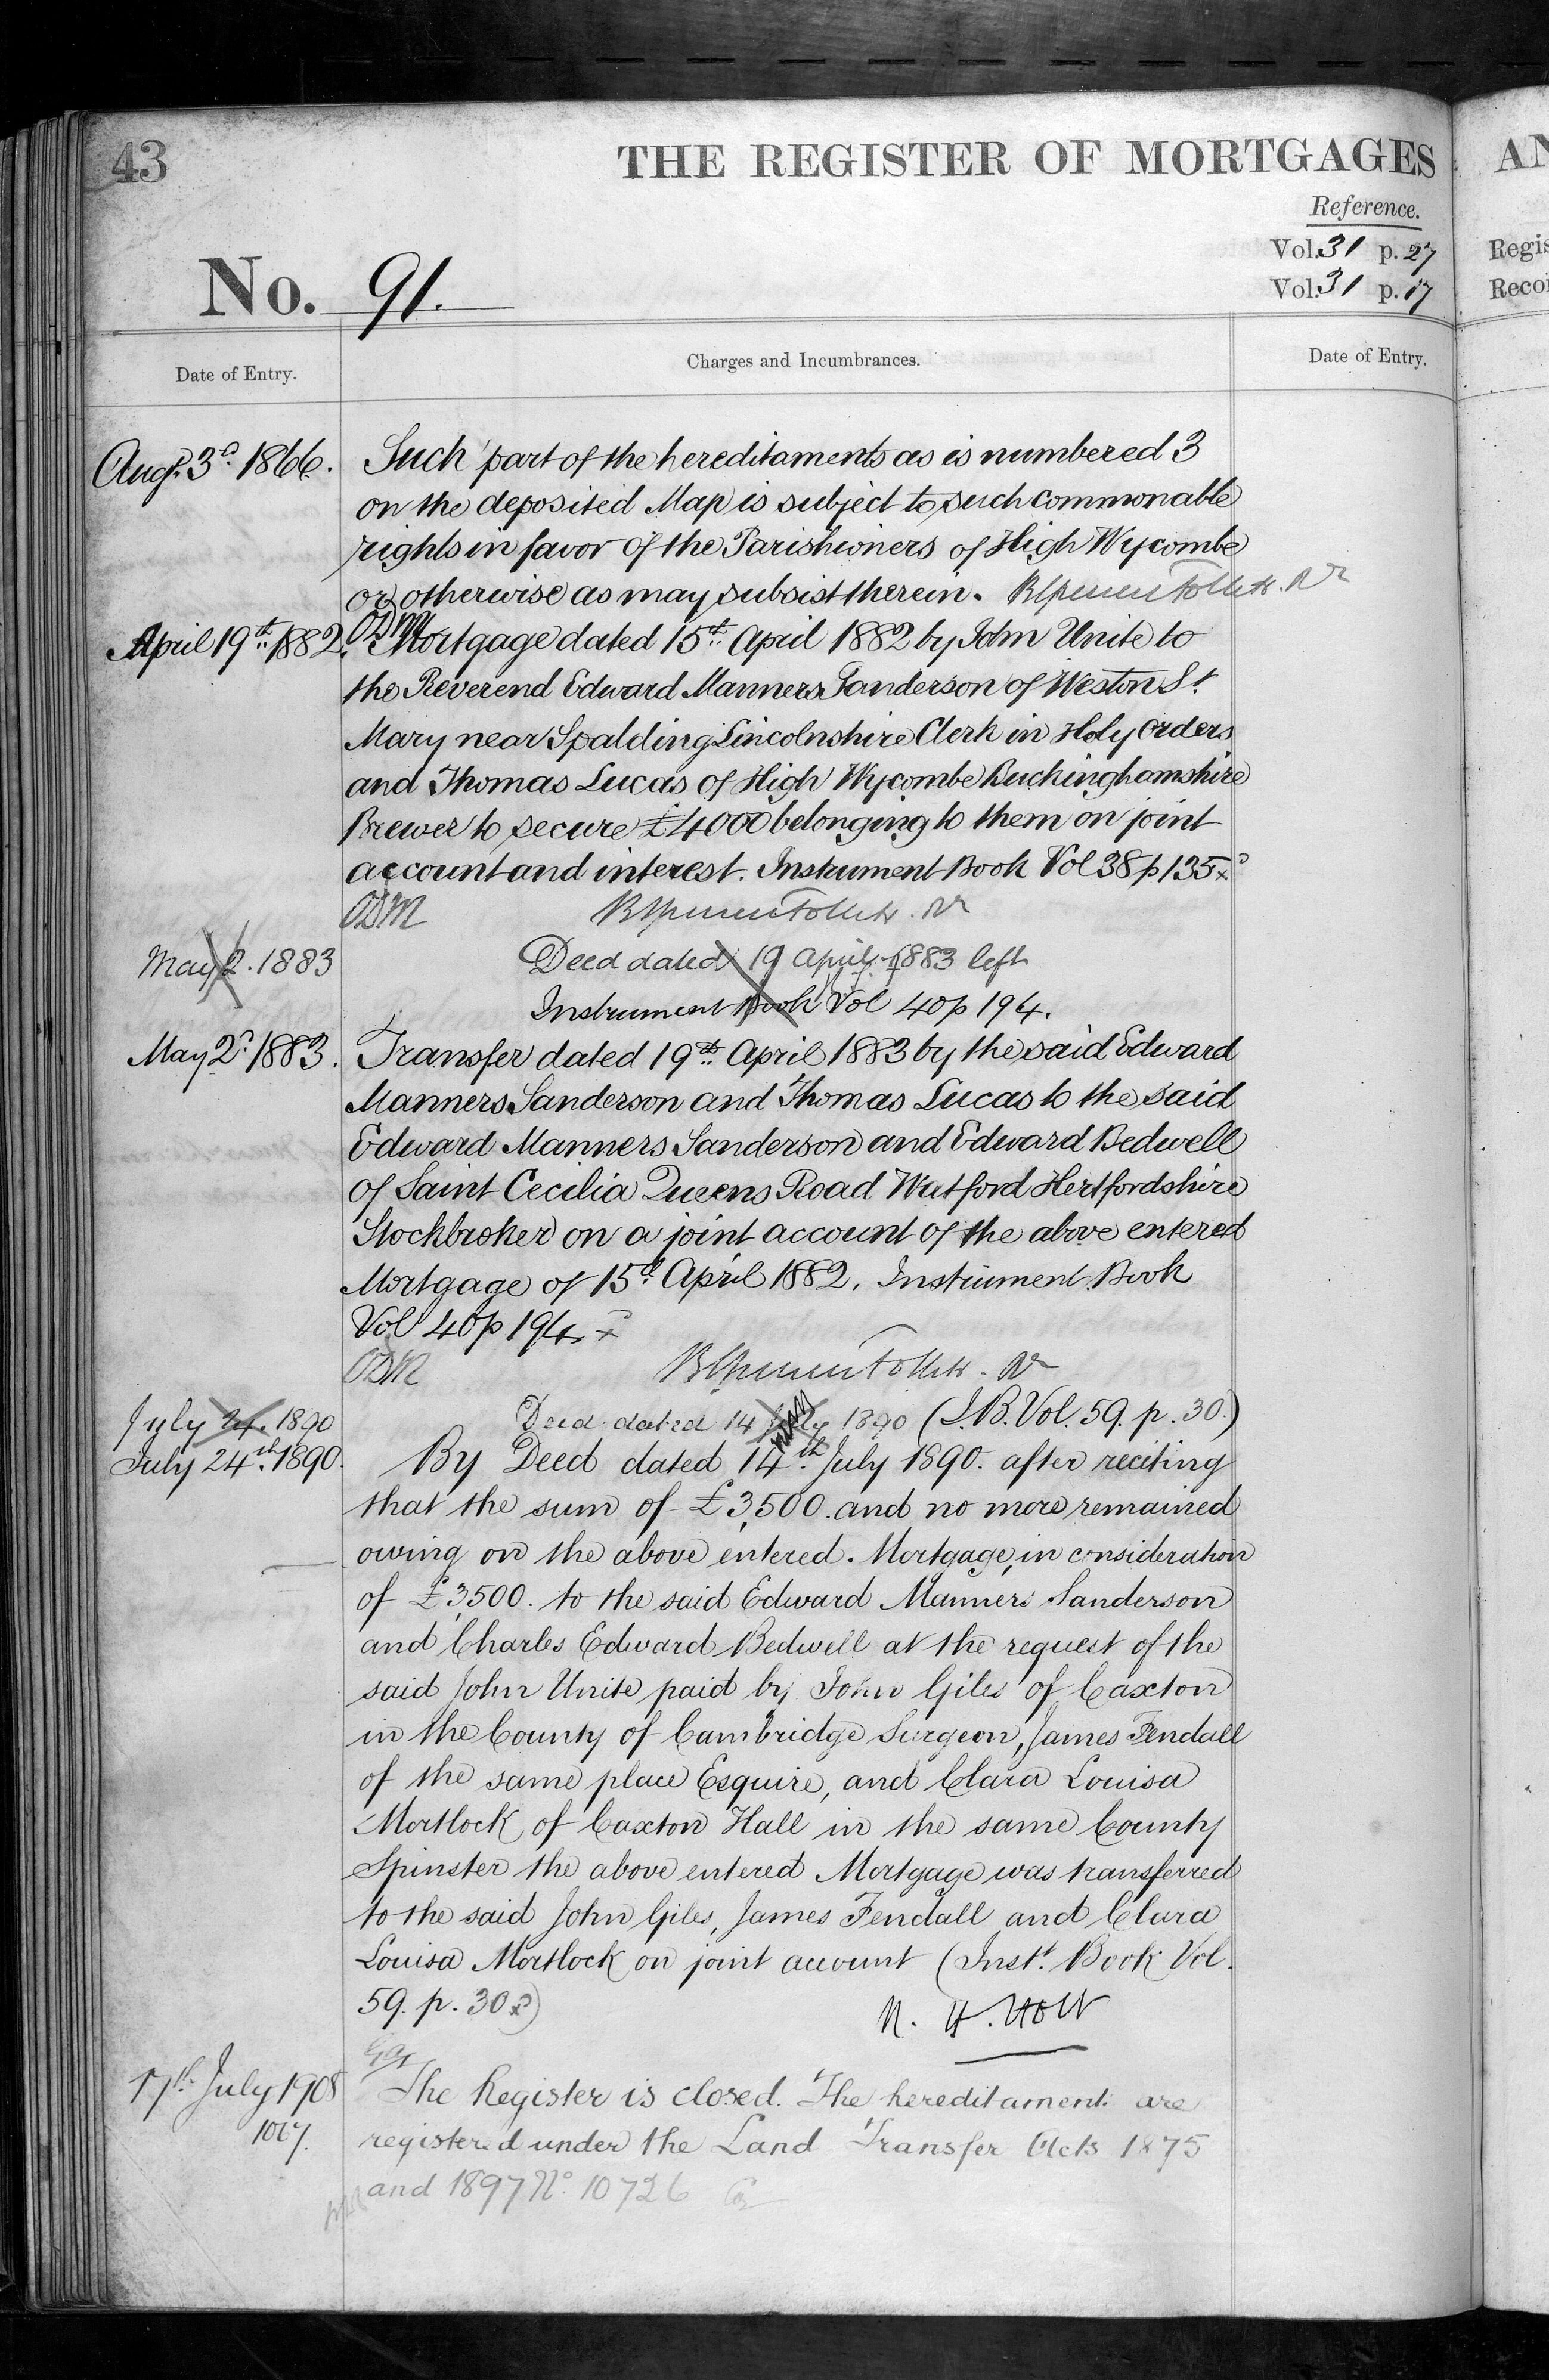 43
THE REGISTER OF MORTGAGES
AN
Reference.
Vol. 31 p. 27
Vol. 31 p. 17
Regis
Recor
No. 91.
Date of Entry.
Charges and Incumbrances.
Date of Entry.
Augt. 3d. 1866. Such part of the hereditaments as is numbered 3
on the deposited Map is subject to such commonable
rights in favor of the Parishioners of High Wycombe
or otherwise as may subsist therein.
April 19th. 1882. Mortgage dated 15th. April 1882 by John Unite to
the Reverend Edward Manners Sanderson of Weston St.
Mary near Spalding Lincolnshire Clerk in Holy Orders
and Thomas Lucas of High Wycombe Buckinghamshire
Brewer to secure £4000 belonging to them on joint
account and interest. Instrument Book Vol 38 p 135
May 2. 1883 Deed dated 19 April 1883 left
Instrument Book Vol 40 p 194.
May 2d. 1883. Transfer dated 19th. April 1883 by the said Edward
Manners Sanderson and Thomas Lucas to the said
Edward Manners Sanderson and Edward Bedwell
of Saint Cecilia Queens Road Watford Hertfordshire
Stockbroker on a joint account of the above entered
Mortgage of 15th. April 1882. Instrument Book
Vol 40 p 194.
July 24. 1890 Deed dated 14 July 1890 (I.B. Vol. 59. p. 30.)
July 24th. 1890. By Deed dated 14th. July 1890. after reciting
that the sum of £3,500. and no more remained
owing on the above entered. Mortgage, in consideration
of £3,500. to the said Edward Manners Sanderson
and Charles Edward Bedwell at the request of the
said John Unite paid by John Giles of Caxton
in the County of Cambridge Surgeon, James Fendall
of the same place Esquire, and Clara Louisa
Mortlock of Caxton Hall in the same County
Spinster the above entered Mortgage was transferred
to the said John Giles, James Fendall and Clara
Louisa Mortlock on joint account (Inst. Book Vol.
59. p. 30)
17th. July 1908 The Register is closed. The hereditaments are
registered under the Land Transfer Acts 1875
and 1897 No. 10726